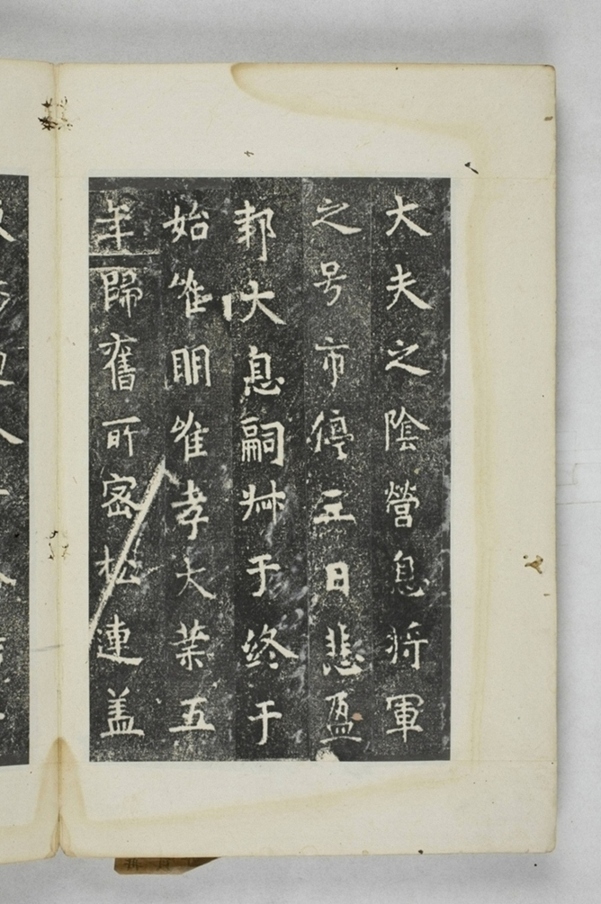 大夫之陰營息將軍
之号市停三日悲盈
邦大息嗣艸于終于
始唯明唯孝大業五
年歸舊所密松連盖